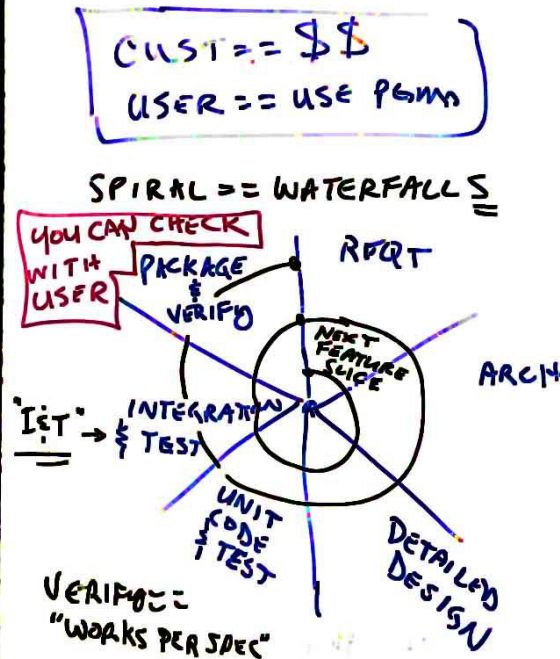 CUST == $$
USER == USE PGMM
SPIRAL == WATERFALLS
YOU CAN CHECK
WITH
USER
PACKAGE
&
VERIFY
REQT
NEXT
FEATURE
SLICE
ARCH
"I&T" →
INTEGRATION
& TEST
UNIT
CODE
& TEST
DETAILED
DESIGN
VERIFY ==
"WORKS PER SPEC"